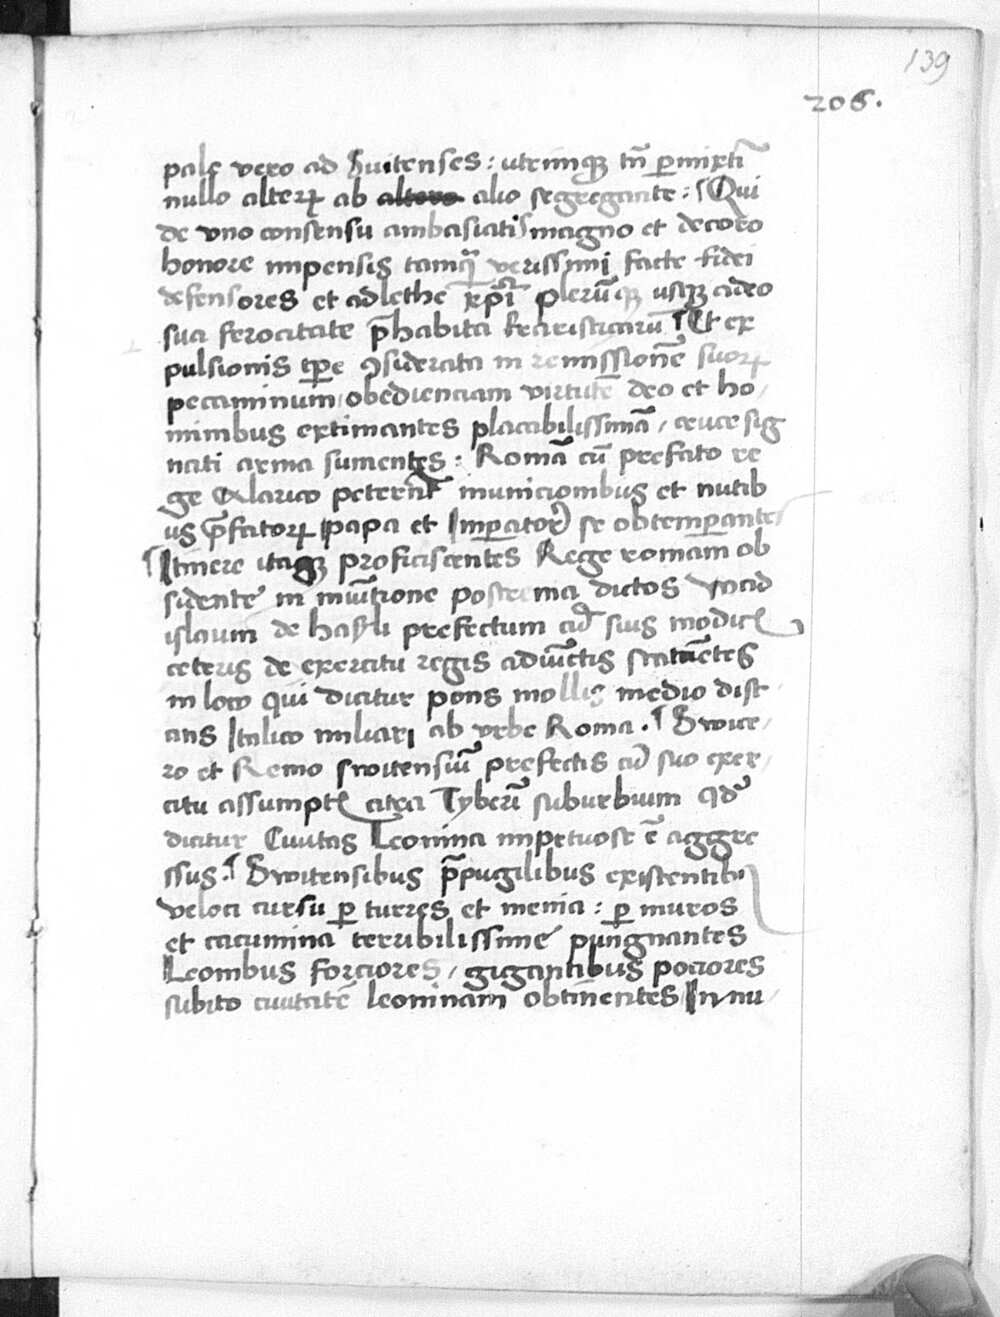 139
206.
pale vero ad Suitenses : utrimqꝫ tn̄ ꝑmixti
nullo alteꝝ ab altero alio segregante : ¶ Qui
de vno consensu ambasiatis magno et decoro
honore impensis tamq̄ verissimi facte fidei
defensores et adlethe xp̄i plerūqꝫ usqꝫ adeo
sua ferocitate p̄habita karisticarū ¶ Et ex
pulsionis tꝑe ꝯsiderata in remissionē suoꝝ
peccaminum obedienciam virtutē deo et ho
minibus extimantes placabilissimā, cruce sig
nati arma sumentes : Romā cū prefato re
ge Alarico peterēt municionibus et nutib
us p̄fatoꝝ pape et Imꝑatorꝭ se obtemperantes
¶ Itinere itaqꝫ proficiscentes Rege romam ob
sidente in mūitione postrema dictos Wad
islaum de hasli prefectum cū suis modicꝭ
ceteris de exercitu regis adiūctis statuētes
in loco qui dicitur pons mollis medio dist
ans Italico miliari ab vrbe Roma . ¶ Swice
ro et Remo switensiū prefectis cū suo exer
citu assumptꝭ citra Tyberī suburbium qd̄
dicitur Ciuitas Leonina impetuose ē aggre
ssus . ¶ Switensibus p̄pugilibus existentib
veloci cursu ꝑ turres et menia : ꝑ muros
et cacumina terribilissime pungnantes
Leonibus forciores, gigantibus pociores
subito ciuitatē leoninam obtinentes In nu